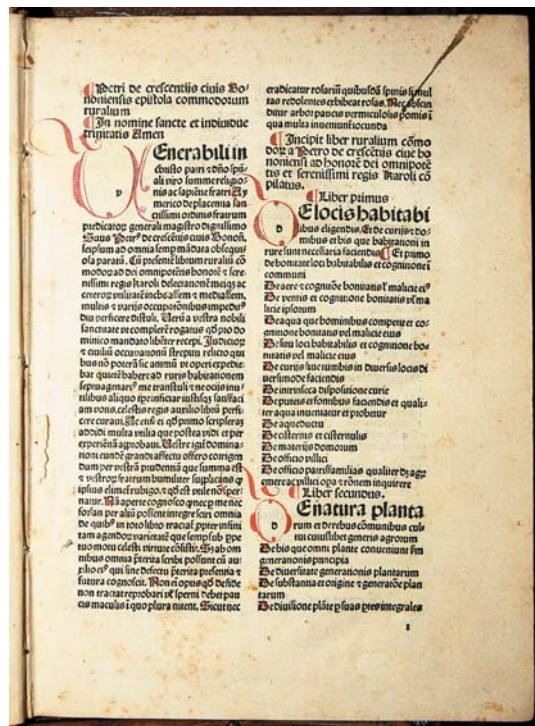 Petri de crescentijs ciuis Bo-
noniensis epistola commodorum
ruralium
In nomine sancte et indiuidue
trinitatis Amen
Uenerabili in
christo patri
ali viro summe religio-
nis ac sapiētie fratri Ay
merico de placentia san-
ctissimi ordinis fratrum
p̄dicatoꝝ generali magistro dignissimo
Suus Petrꝰ de crescētijs ciuis Bonoñ.
seipsum ad omnia semp māndata obsequio
ofa paratū. Cū presentē librum ruraliū cō
modoꝝ ad dei omnipotētis honorē ⁊ sere-
nissimi regis karoli delectationē
ceteroꝝ vtilitatē
multis ⁊ varijs occupationibus impeditꝰ
diu perficere distuli. Verū a vestra nobili
sanctitate vt complerē rogatus
minico mandato libēter recepi. Judicioꝝ
⁊ ciuiliū occupationū strepitu relicto qui
bus nō poterā sic animū vt operi expedie-
bat quietē habere ad ruris habitationem
septuagenariꝰ me transtuli
tilibus aliquo
am votis. celestis regis auxilio librū perfi-
cere curaui. Ac eniz ei qd primo scripseraz
addidi multa vtilia que postea vidi et per
experientiā approbaui. Vestre igit̄ domina-
tioni eundē grandi affectu offero corrigen
dum per vestrā prudentiā que summa est
⁊ vestroꝝ fratrum humiliter suplicans
ipsius
natur. Nā aperte cognosco
fozsan per aliū possent integre sciri omnia
de quibꝰ in toto libro
tam agendoꝝ varietatē
tuo motu celesti virtute cōsistit.
nibus omnia
xilio eiꝰ qui sine defectu p̄terita presentia ⁊
futura cognoscit. Non
non tractatꝰ reprobari vł sperni debet pau
cis maculis i quo plura nitent. Sicut nec
eradicatur rosariū quibusdā spinis simul
tas redolentes exhibeat rosas. Nec abscin
ditur arbor paucis vermiculosis pomis i
qua multa inueniunt iocunda
Incipit liber ruralium cōmo
doꝝ a Petro de crescētijs ciue bo
noniensi ad honorē dei omnipotē
tis et serenissimi regis Karoli cō
pilatus.
Liber primus
De locis habitabi
libus eligendis. Et de curijs ⁊ do-
mibus et his que habitationi in
rure sunt necessaria faciendis Et primo
de bonitate loci habitabilis et cognitione i
communi
De aere ⁊ cognitiōe bonitatis ł malicie eiꝰ
De ventis et cognitione bonitatis vł ma
licie ipsorum
De aqua que hominibus competit et co-
gnitione bonitatis vel malicie eius
De situ loci habitabilis et cognitione bo-
nitatis vel malicie eius
De curijs siue tumbis in diuersis locis di
uersimode faciendis
De intrinseca dispositione curie
De puteis et fontibus faciendis et quali-
ter aqua inueniatur et probetur
De aqueductu
De cisternis et cisternulis
De materijs domorum
De officio villici
De officio patrisfamilias qualiter
emere ac villici opa ⁊ rōnem inquirere
Liber secundus.
De natura planta
rum et de rebus cōmunibus cul
tui cuiuslibet generis agrorum
De his que omni plante conueniunt
generationis principia
De diuersitate generationis plantarum
De substantia et origine ⁊ generatōe plan
tarum
De diuisione plāte p suas ptes integrales